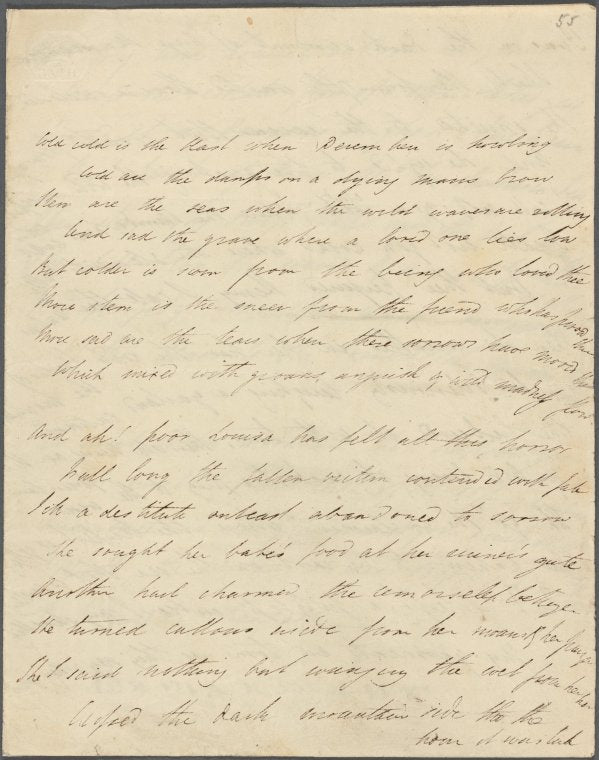 55
Cold cold is the blast when December is howling
Cold are the damps on a dying mans brow
Stern are the seas when the wild waves are rolling
And sad the grave where a loved one lies low
But colder is scorn from the being who loved thee
More stern is the sneer from the friend who has proved thee
More sad are the tears when these sorrows have moved thee
Which mixed with groans anguish & wild madness flow
And ah! poor Louisa has felt all this horror
Full long the fallen victim contended with fate
Till a destitute outcast abandoned to sorrow
She sought her babe's food at her ruiner's gate
Another had charmed the remorseless betrayer
He turned callous aside from her moans & her
She said nothing but wringing the wet from her hair
Crossed the dark mountain side tho the
hour it was late